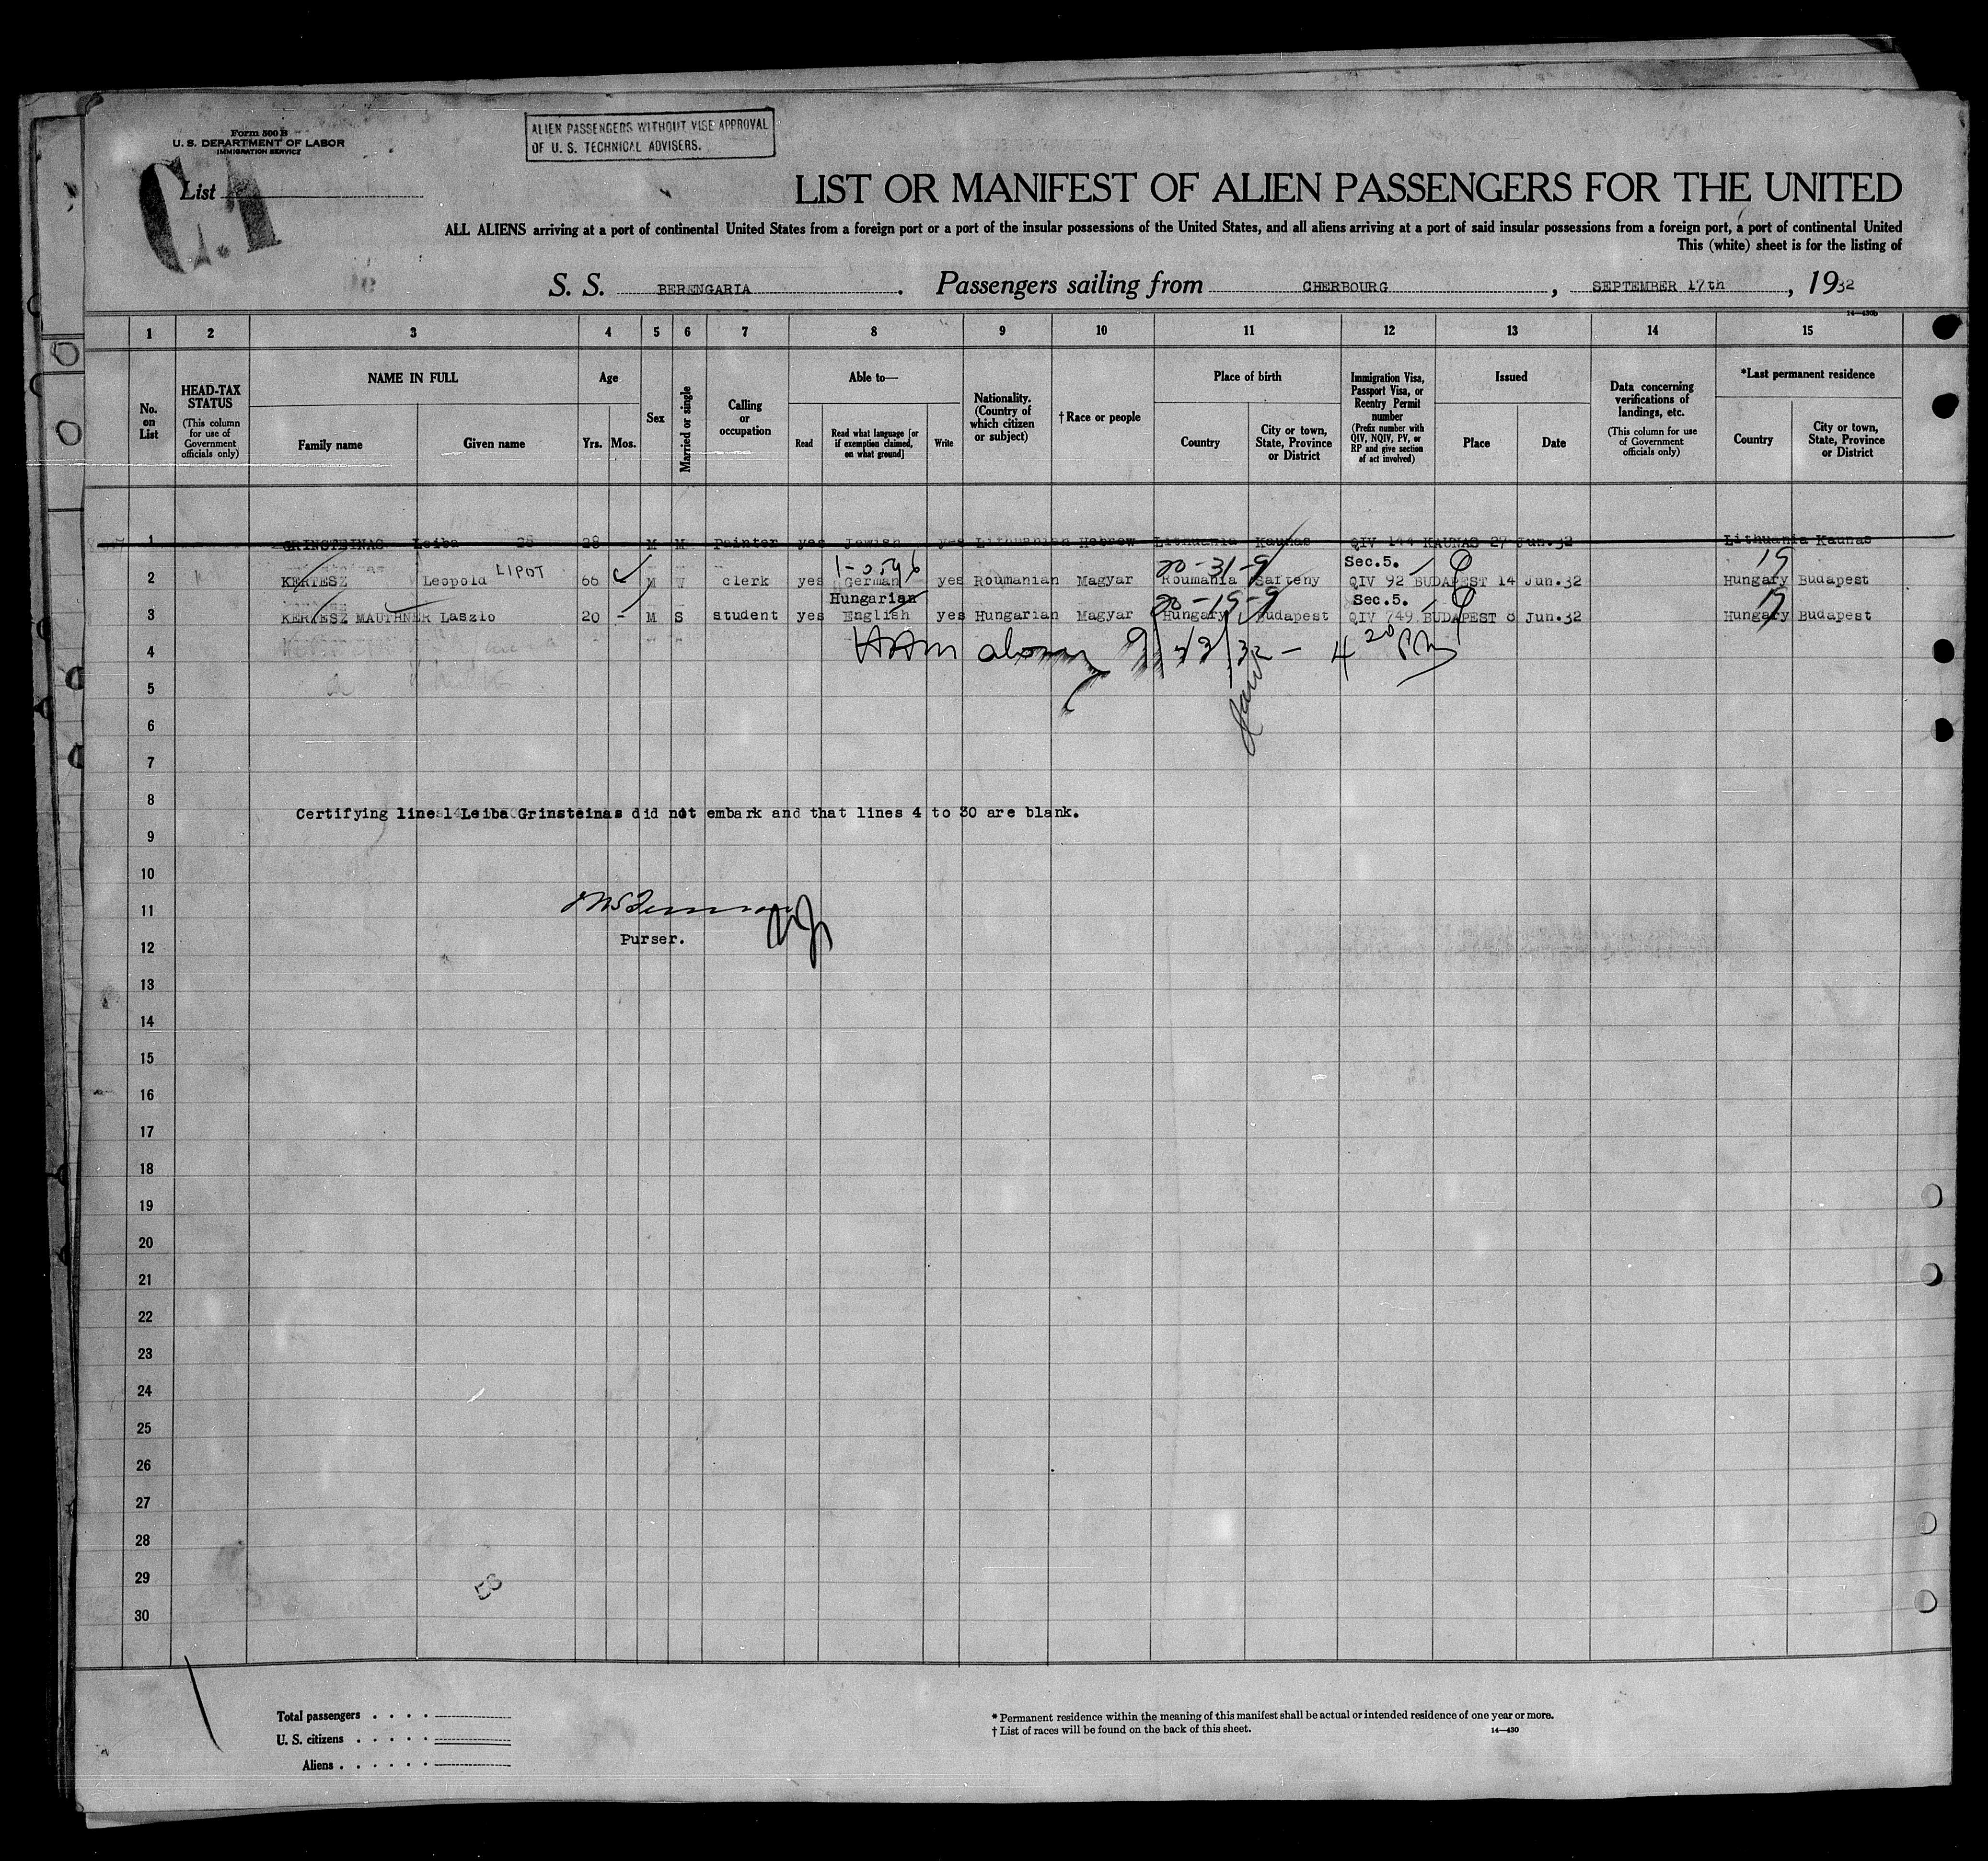 Form 500 B
U. S. DEPARTMENT OF LABOR
IMMIGRATION SERVICE
ALIEN PASSENGERS WITHOUT VISE APPROVAL
OF U. S. TECHNICAL ADVISERS.
List
C.1
LIST OR MANIFEST OF ALIEN PASSENGERS FOR THE UNITED
ALL ALIENS arriving at a port of continental United States from a foreign port or a port of the insular possessions of the United States, and all aliens arriving at a port of said insular possessions from a foreign port, a port of continental United
This (white) sheet is for the listing of
S. S. BERENGARIA. Passengers sailing from CHERBOURG, SEPTEMBER 17th, 1932
14—430b
1 2 3 4 5 6 7 8 9 10 11 12 13 14 15
No. on List
HEAD-TAX STATUS (This column for use of Government officials only)
NAME IN FULL
Family name
Given name
Age
Yrs. Mos.
Sex
Married or single
Calling or occupation
Able to—
Read
Read what language [or if exemption claimed, on what ground]
Write
Nationality. (Country of which citizen or subject)
† Race or people
Place of birth
Country
City or town, State, Province or District
Immigration Visa, Passport Visa, or Reentry Permit number (Prefix number with QIV, NQIV, PV, or RP and give section of act involved)
Issued
Place
Date
Data concerning verifications of landings, etc. (This column for use of Government officials only)
*Last permanent residence
Country
City or town, State, Province or District
1 GRINSTEINAS Leiba 28 28 M M Painter yes Jewish yes Lithuanian Hebrew Lithuania Kaunas QIV 144 KAUNAS 27 Jun.32 Lithuania Kaunas
LIPOT 20-31-9 Sec.5. 19
2 KERTESZ Leopold 66 M W clerk yes German yes Roumanian Magyar Roumania Safteny QIV 92 BUDAPEST 14 Jun.32 Hungary Budapest
Hungarian 20-19-9 Sec.5. 19
3 KERTESZ MAUTHNER Laszlo 20 - M S student yes English yes Hungarian Magyar Hungary Budapest QIV 749 BUDAPEST 8 Jun.32 Hungary Budapest
4 9/23/32 - 4 20 PM
5
6
7
8
Certifying line 1 Leiba Grinsteinas did not embark and that lines 4 to 30 are blank.
9
10
11
Purser.
12
13
14
15
16
17
18
19
20
21
22
23
24
25
26
27
28
29
30
Total passengers
U. S. citizens
Aliens
* Permanent residence within the meaning of this manifest shall be actual or intended residence of one year or more.
† List of races will be found on the back of this sheet. 14—430